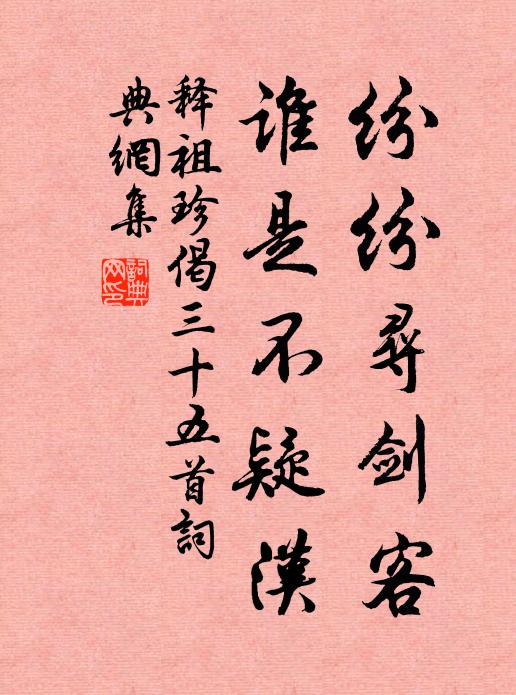 纷纷尋剑客
谁是不疑漢
释祖珍偈三十五首詞
典網集
詞典网印